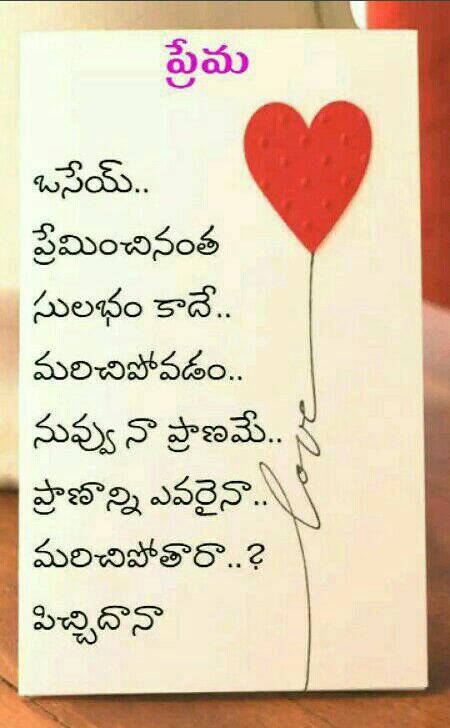 ప్రేమ
ఒసేయ్..
ప్రేమించినంత
సులభం కాదే..
మరిచిపోవడం..
నువ్వు నా ప్రాణమే..
ప్రాణాన్ని ఎవరైనా..
మరిచిపోతారా..?
పిచ్చిదానా
love